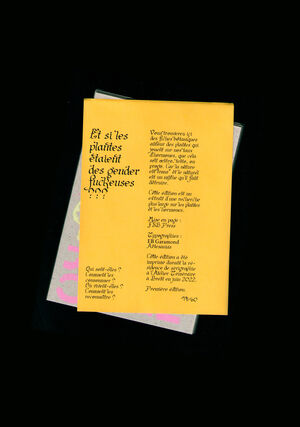 Et si les
plantes
étaient
des gender
fuckeuses
Vous trouverez ici
des fiches botaniques
autour des plantes qui
jouent sur nos taux
d'hormones, que cela
soit œstro, testo, ou
prog. Car la nature
est trans* et le naturel
est un mythe qu'il faut
détruire.
Cette édition est un
extrait d'une recherche
plus large sur les plantes
et les hormones.
Mise en page :
Press
Typographies :
EB Garamond
Cette édition a été
imprimée durant la ré-
sidence de sérigraphie
à l'Atelier
à Brest en juin 2022.
Première édition
/40
Qui sont-elles ?
Comment les
consommer ?
Où vivent-elles ?
Comment les
reconnaître ?